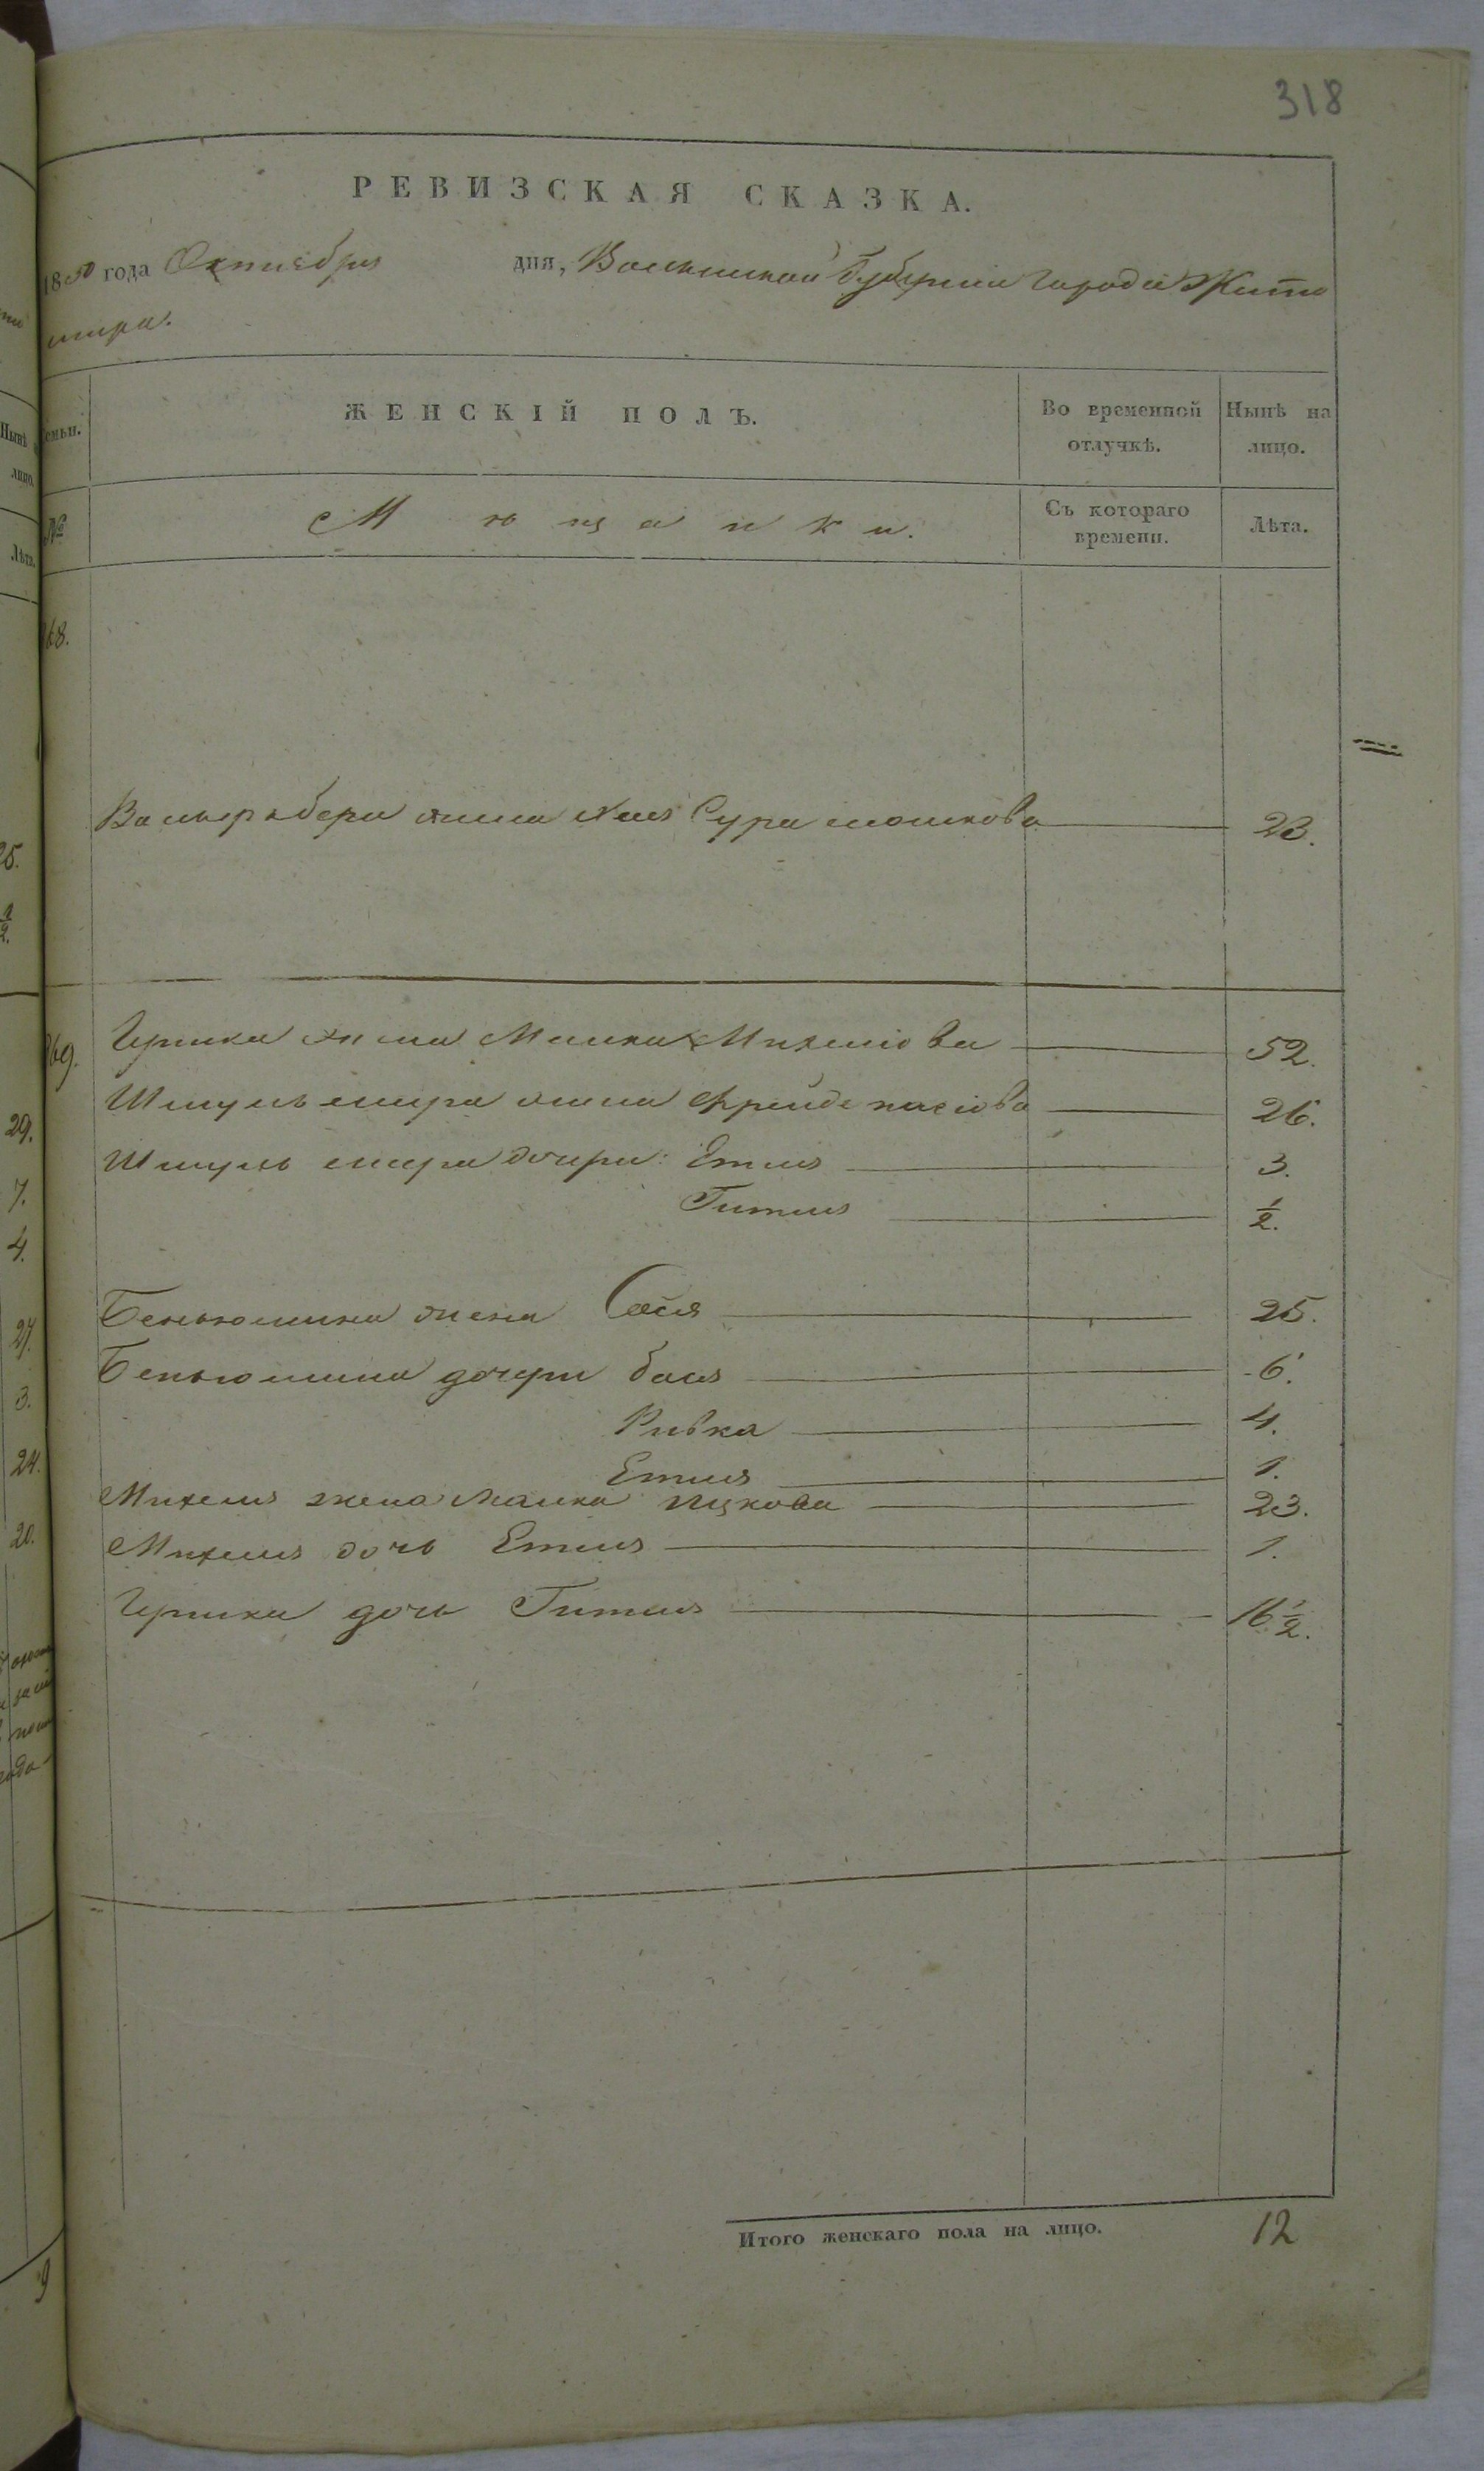 318
РЕВИЗСКАЯ СКАЗКА.
1850 года Октября дня, Волынской Губернии Города Жито
мира.
семьи. ЖЕНСКІЙ ПОЛЪ. Во временной отлучкѣ. Нынѣ на лицо.
№ Мѣщанки. Съ котораго времени. Лѣта.
168.
Вольфъ бера жена Хая Сура мошкова 23.
169. Гершка жена Малка Михелiова 52.
Шмуль меера жена Фрейда 26.
Шмуль меера дочери: Етля 3.
Гитля 1/2.
Беньюмина жена Бася 25.
Беньюмина дочери бася 6.
Ривка 4.
Етля 1.
Михеля жена Малка ицкова 23.
Михеля дочь Етля 1.
Гершка дочь Гитля 16 1/2.
Итого женскаго пола на лицо. 12